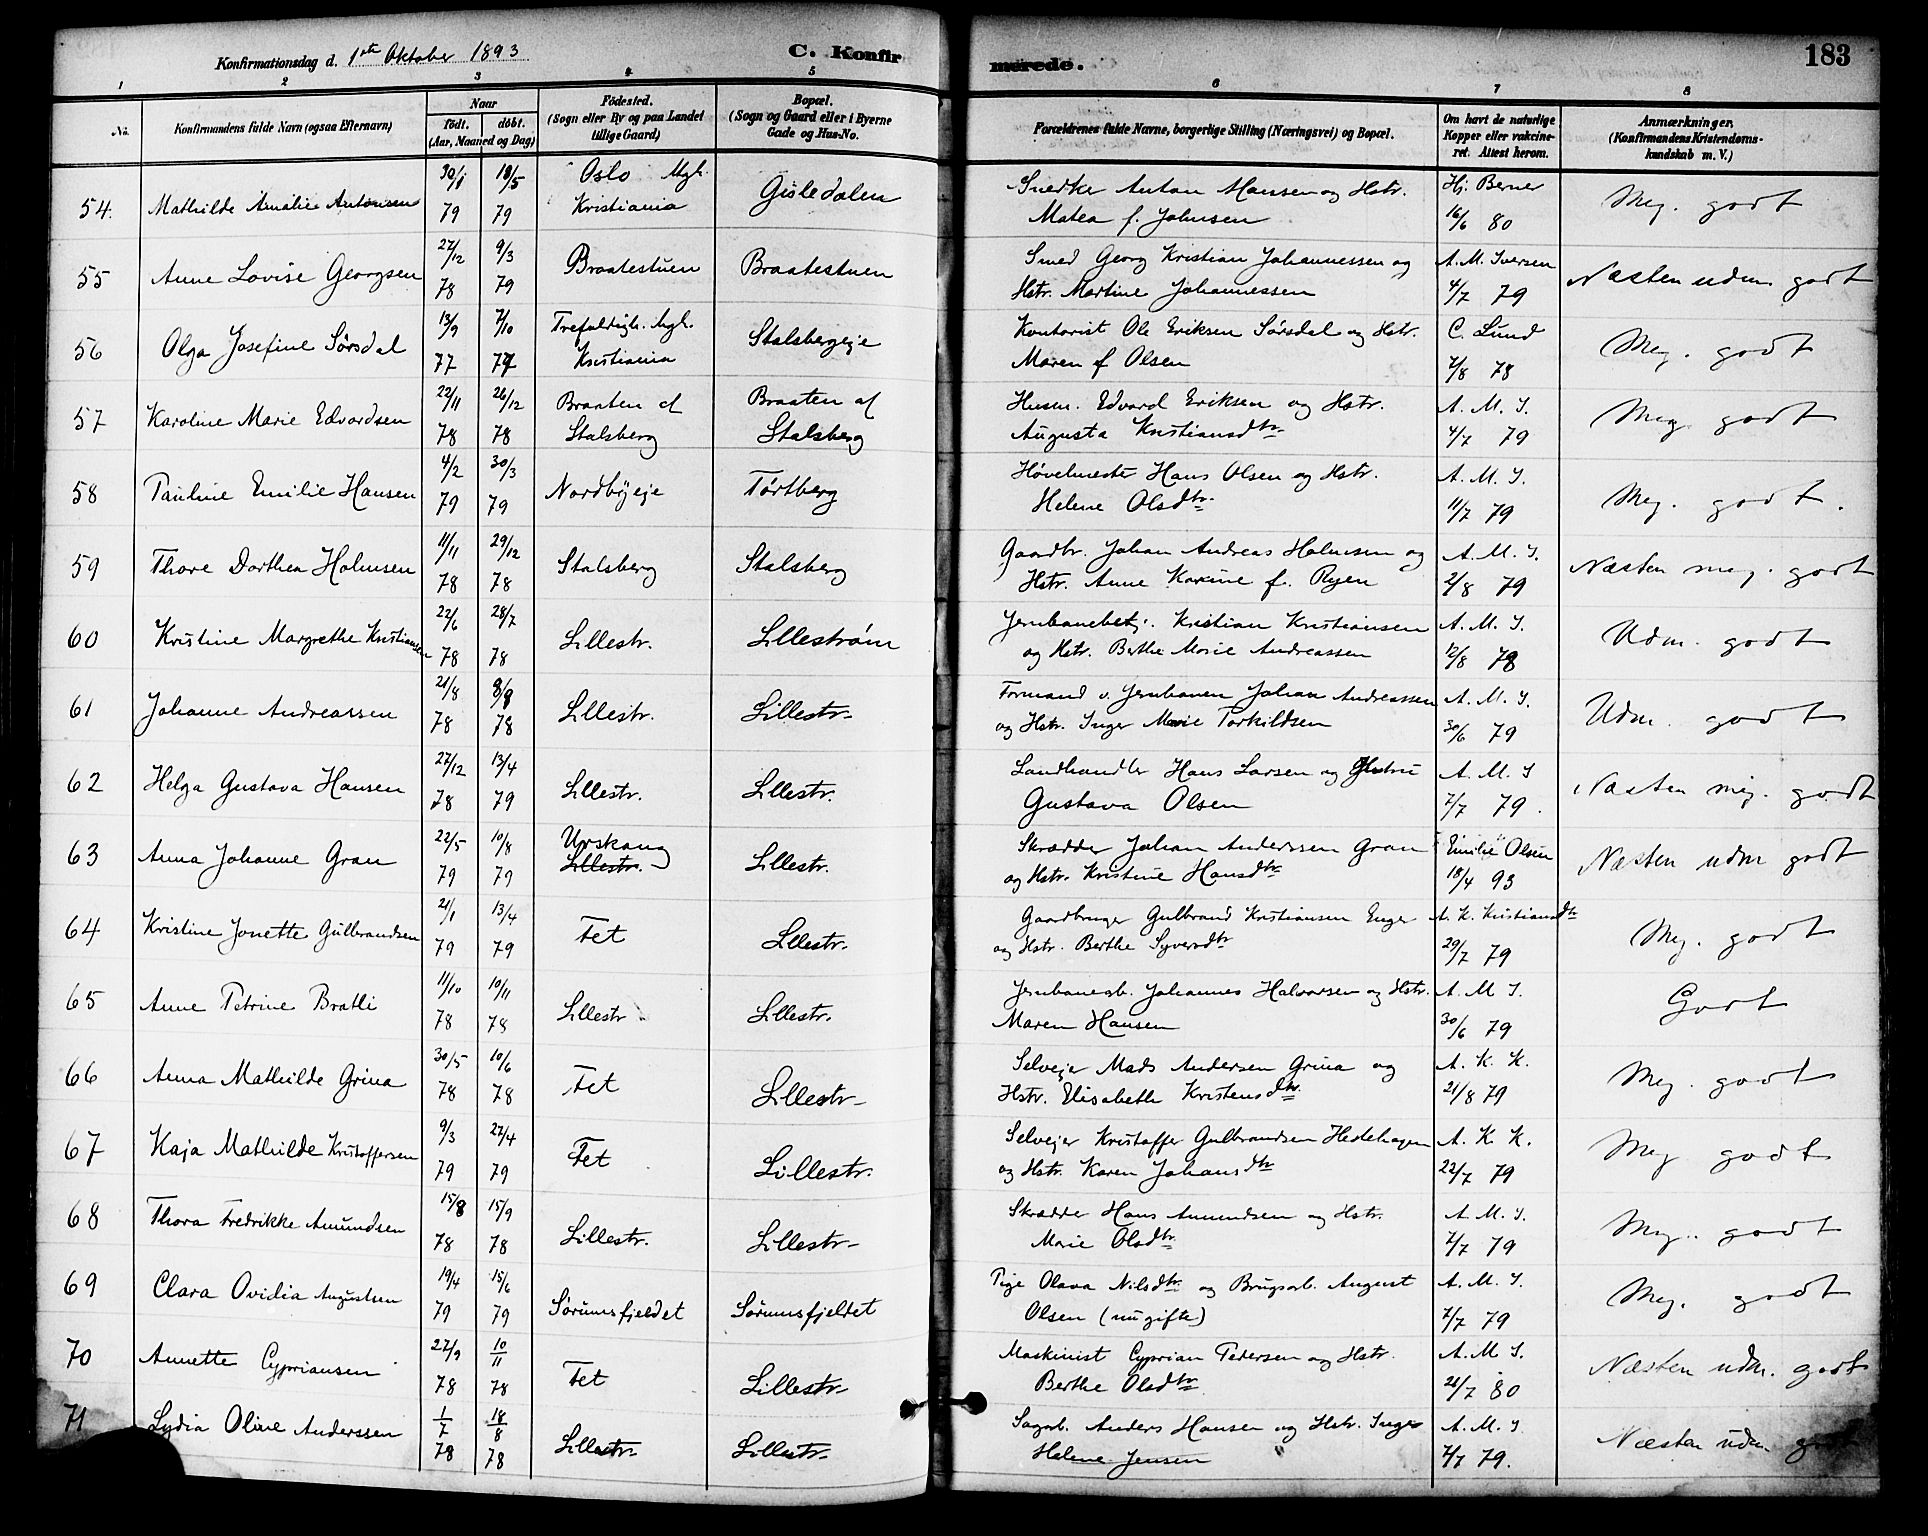 Konfirmationsdag d. 1ste Oktober 1893
C. Konfirmerede.
183
1 2 3 4 5 6 7 8
No. Konfirmandens fulde Navn (ogsaa Efternavn) Naar født. døbt. (Aar, Maaned og Dag) Fødested. (Sogn eller By og paa Landet tillige Gaard) Bopæl. (Sogn og Gaard eller i Byerne Gade og Hus-No. Forældrenes fulde Navne, borgerlige Stilling (Næringsvei) og Bopæl. Om havt de naturlige Kopper eller vakcineret. Attest herom. Anmærkninger. (Konfirmandens Kristendomskundskab m. V.)
54. Mathilde Amalie Antonsen 30/1 79 18/5 79 Oslo Mgh. Kristiania Gisledalen Snedker Anton Hansen og Hstr. Matea f. Johnsen Hj. Berner 16/6 80 Meg. godt
55 Anne Lovise Georgsen 27/12 78 9/3 79 Braatestuen Braatestuen Smed Georg Kristian Johannessen og Hstr. Martine Johannessen A. M. Iversen 4/7 79 Næsten udm. godt
56 Olga Josefine Sørsdal 13/9 77 7/10 77 Trefoldigh. Mgh. Kristiania Stalsbergeje Kontorist Ole Eriksen Sørsdal og Hstr. Maren f Olsen C. Lund 7/8 78 Meg. godt
57 Karoline Marie Edvardsen 22/11 78 26/12 78 Braaten af Stalsberg Braaten af Stalsberg Husm. Edvard Eriksen og Hstr. Augusta Kristiansdtr A. M. I. 4/7 79 Meg. godt
58 Pauline Emilie Hansen 4/2 79 30/3 79 Nordbyeje Tørtberg Høvelmester Hans Olsen og Hstr. Helene Olsdtr. A. M. I. 11/7 79 Meg. godt.
59 Thore Dorthea Holmsen 11/11 78 29/12 78 Stalsberg Stalsberg Gaardbr. Johan Andreas Holmsen og Hstr. Anne Karine f. Ryen A. M. I. 2/8 79 Næsten meg. godt
60 Kristine Margrethe Kristiansen 22/6 78 28/7 78 Lillestr. Lillestrøm Jernbanebetj. Kristian Kristiansen og Hstr. Berthe Marie Andreassen A. M. I. 12/8 78 Udm. godt
61 Johanne Andreassen 21/8 78 8/9 78 Lillestr. Lillestr. Formand v. Jernbanen Johan Andreassen og Hstr. Inger Marie Torkildsen A. M. I. 30/6 79 Udm. godt
62 Helga Gustava Hansen 27/12 78 13/4 79 Lillestr. Lillestr. Landhandler Hans Larsen og Hustru Gustava Olsen A. M. I 7/7 79. Næsten meg. godt
63 Anna Johanne Gran 22/5 79 10/8 79 Urskoug Lillestr. Lillestr. Skrædder Johan Anderssen Gran og Hstr. Kristine Hansdtr. Emilie Olsen 18/4 93 Næsten udm godt
64 Kristine Jonette Gulbrandsen 21/1 79 13/4 79 Fet Lillestr. Gaardbruger Gulbrand Kristiansen Enger og Hstr. Berthe Syversdtr A. K. Kristiansdtr 29/7 79 Meg. godt
65 Anne Petrine Bratli 11/10 78 10/11 78 Lillestr Lillestr. Jernbanearb. Johannes Halvorsen og Hstr. Maren Hansen A. M I. 30/6 79 Godt
66 Anna Mathilde Grina 30/5 78 10/6 78 Fet Lillestr. Selvejer Mads Andersen Grina og Hstr. Elisabeth Kristensdtr. A. K. K. 21/8 79 Meg. godt
67 Kaja Mathilde Kristoffersen 9/3 79 27/4 79 Fet Lillestr. Selvejer Kristoffer Gulbrandsen Hedehagen og Hstr. Karen Johansdtr A. K. K. 22/7 79 Meg godt
68 Thora Fredrikke Amundsen 15/8 78 15/9 78 Lillestr. Lillestr. Skrædder Hans Amundsen og Hstr. Marie Olsdtr. A. M. I. 7/7 79 Meg. godt
69 Clara Ovidia Augustsen 19/4 79 15/6 79 Sørumsfjeldet Sørumsfjeldet Pige Olava Nilsdtr. og Brugsarb. August Olsen (nu gifte) A. M. I. 7/7 79 Meg. godt
70 Annette Cypriansen 27/9 78 10/11 78 Fet Lillestr. Maskinist Cyprian Pedersen og Hstr. Berthe Olsdtr A. M I. 21/7 80 Næsten udm. godt
71 Lydia Oline Anderssen 1/7 78 18/8 78 Lillestr. Lillestr. Sagarb. Anders Hansen og Hstr. Inger Helene Jensen A. M. I 7/7 79. Næsten udm. godt